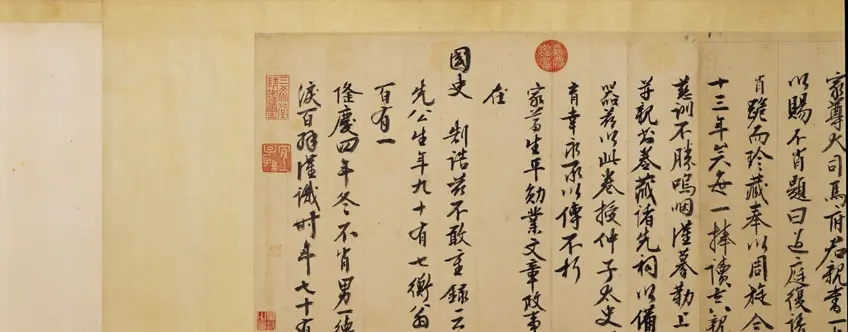 家尊大司馬府君親書一
以賜不肖題曰過庭復語
肖跪而珍藏奉以周旋今
十三年矣每一捧讀言親
慈訓不勝嗚咽謹摹勒上
尊親書卷藏諸先祠以備
器若以此卷授仲子太史
育幸永承以傳不朽
家尊生平勛業文章政事
在
國史 制誥茲不敢重錄云
先公生年九十有七衡翁
百有一
隆慶四年冬不肖男一德
淚百拜謹識時年七十有
三希堂精鑑璽
宜子孫